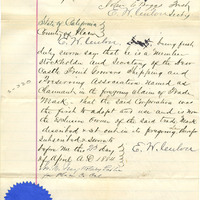 John C. Boggs Presdt
E. W. Culver Secty
State of California
County of Placer
E. W. Culver being first
duly sworn says that he is a member
Stockholder and Secretary of the New
Castle Fruit Growers Shipping and
Preserving Association named as
Claimant in the foregoing claim of Trade
Mark, that the said Corporation was
the first to adopt and use and is now
the exclusive Owner of the said Trade Mark
described & set out in the foregoing
Subscribed & sworn to
before me this day
of April A.D.
E. W. Culver